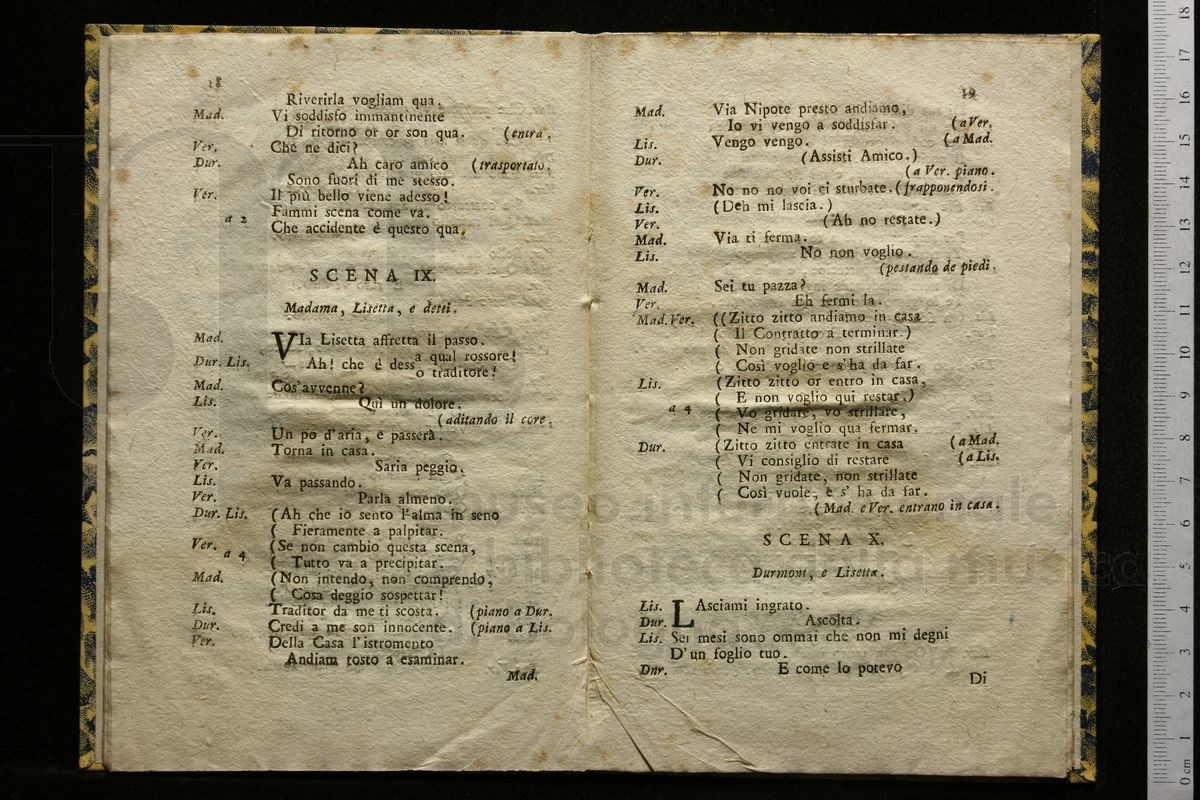 18
Riverirla vogliam qua.
Mad. Vi soddisfo immantinente
Di ritorno or or son qua. (entra.
Ver. Che ne dici?
Dur. Ah caro amico (trasportato.
Sono fuori di me stesso.
Ver. Il più bello viene adesso!
a 2 Fammi scena come va.
Che accidente è questo qua.
SCENA IX.
Madama, Lisetta, e detti.
Mad. VIa Lisetta affretta il passo.
Dur. Lis. Ah! che è dess a qual rossore!
o traditore!
Mad. Cos'avvenne?
Lis. Quì un dolore.
(aditando il core.
Ver. Un po d'aria, e passerà.
Mad. Torna in casa.
Ver. Saria peggio.
Lis. Va passando.
Ver. Parla almeno.
Dur. Lis. (Ah che io sento l'alma in seno
( Fieramente a palpitar.
Ver. (Se non cambio questa scena,
a 4 ( Tutto va a precipitar.
Mad. (Non intendo, non comprendo,
( Cosa deggio sospettar!
Lis. Traditor da me ti scosta. (piano a Dur.
Dur. Credi a me son innocente. (piano a Lis.
Ver. Della Casa l'istromento
Andiam tosto a esaminar.
Mad.
19
Mad. Via Nipote presto andiamo,
Io vi vengo a soddisfar. (a Ver.
Lis. Vengo vengo. (a Mad.
Dur. (Assisti Amico.)
(a Ver. piano.
Ver. No no no voi ci sturbate. (frapponendosi.
Lis. (Deh mi lascia.)
Ver. (Ah no restate.)
Mad. Via ti ferma.
Lis. No non voglio.
(pestando de piedi.
Mad. Sei tu pazza?
Ver. Eh fermi la.
Mad. Ver. ((Zitto zitto andiamo in casa
( Il Contratto a terminar.)
( Non gridate non strillate
( Così voglio e s'ha da far.
Lis. (Zitto zitto or entro in casa,
( E non voglio qui restar.)
a 4 ( Vo gridare, vo strillare,
( Ne mi voglio qua fermar.
Dur. (Zitto zitto entrate in casa (a Mad.
( Vi consiglio di restare (a Lis.
( Non gridate, non strillate
( Così vuole, e s' ha da far.
(Mad. e Ver. entrano in casa.
SCENA X.
Durmont, e Lisetta.
Lis. LAsciami ingrato.
Dur. Ascolta.
Lis. Sei mesi sono ommai che non mi degni
D'un foglio tuo.
Dnr. E come lo potevo
Di